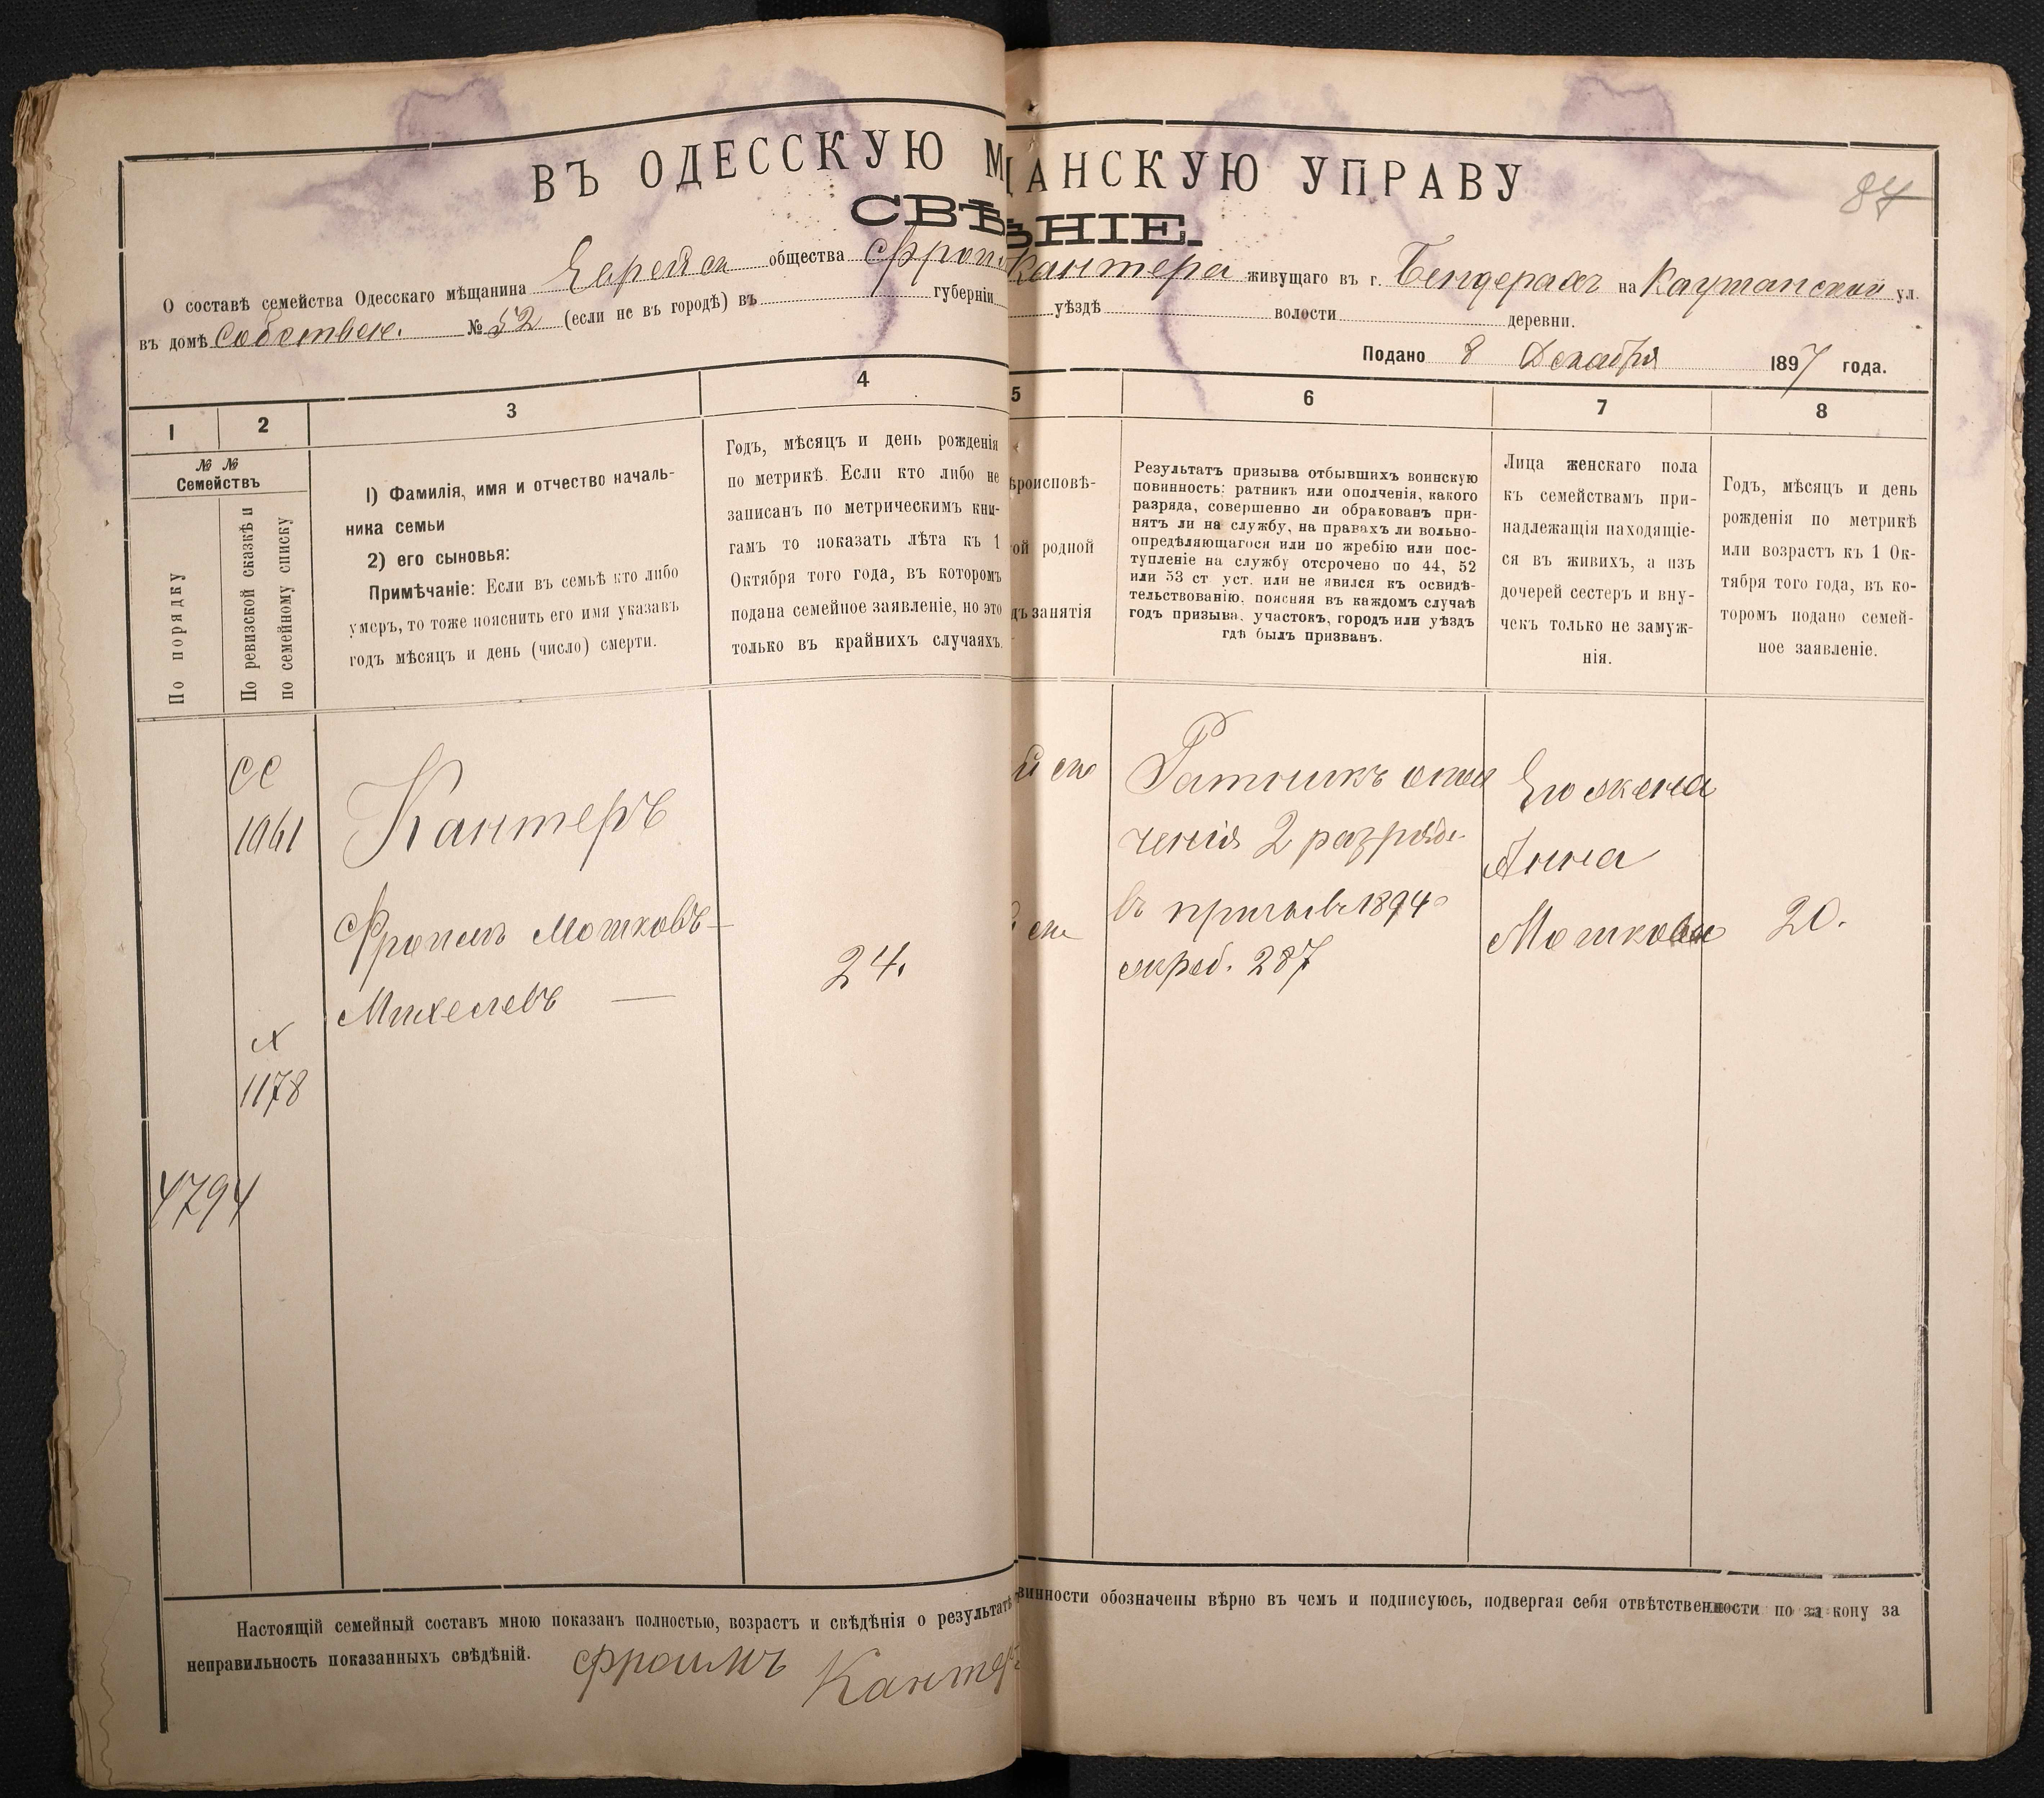 ВЪ ОДЕССКУЮ М ЩАНСКУЮ УПРАВУ
87
СВѢ ѢНІЕ.
О составѣ семейства Одесскаго мѣщанина Еврейск общества Фроим Кантера живущаго въ г. Бендерахъ на Каушанской ул.
въ домѣ Собствен. № 52 (если не въ городѣ) въ губерніи уѣздѣ волости деревни.
Подано 8 Декабря 1897 года.
1 2 3 4 5 6 7 8
№ №
Семействъ
По порядку
По ревизской сказкѣ и
по семейному списку
1) Фамилія, имя и отчество началь-
ника семьи
2) его сыновья:
Примѣчаніе: Если въ семьѣ кто либо
умеръ, то тоже пояснить его имя указавъ
годъ мѣсяцъ и день (число) смерти.
Годъ, мѣсяцъ и день рожденія
по метрикѣ. Если кто либо не
записанъ по метрическимъ кни-
гамъ то показать лѣта къ 1
Октября того года, въ которомъ
подана семейное заявленіе, но это
только въ крайнихъ случаяхъ.
ѣроисповѣ-
ой родной
дъ занятія
Результатъ призыва отбывшихъ воинскую
повинность: ратникъ или ополченія, какого
разряда, совершенно ли обракованъ при-
нятъ ли на службу, на правахъ ли вольно-
опредѣляющагося или по жребію или пос-
тупленіе на службу отсрочено по 44, 52
или 53 ст уст. или не явился къ освидѣ-
тельствованію, поясняя въ каждомъ случаѣ
годъ призыва, участокъ, городъ или уѣздъ
гдѣ былъ призванъ.
Лица женскаго пола
къ семействамъ при-
надлежащія находящіе-
ся въ живихъ, а изъ
дочерей сестеръ и вну-
чекъ только не замуж-
нія.
Годъ, мѣсяцъ и день
рожденія по метрикѣ
или возрастъ къ 1 Ок-
тября того года, въ ко-
торомъ подано семей-
ное заявленіе.
сс
1961
Кантеръ
Фроимъ Мошковъ —
Михелевъ —
24.
х
1178
4794
Ратникъ опол
ченія 2 разряд.
въ призывъ 1894
жреб. 287
Его жена
Анна
Мошкова
20.
Настоящій семейный составъ мною показанъ полностью, возрастъ и свѣдѣнія о результатѣ винности обозначены вѣрно въ чемъ и подписуюсь, подвергая себя отвѣтственности по за кону за
неправильность показанныхъ свѣдѣній. Фроимъ Кантеръ